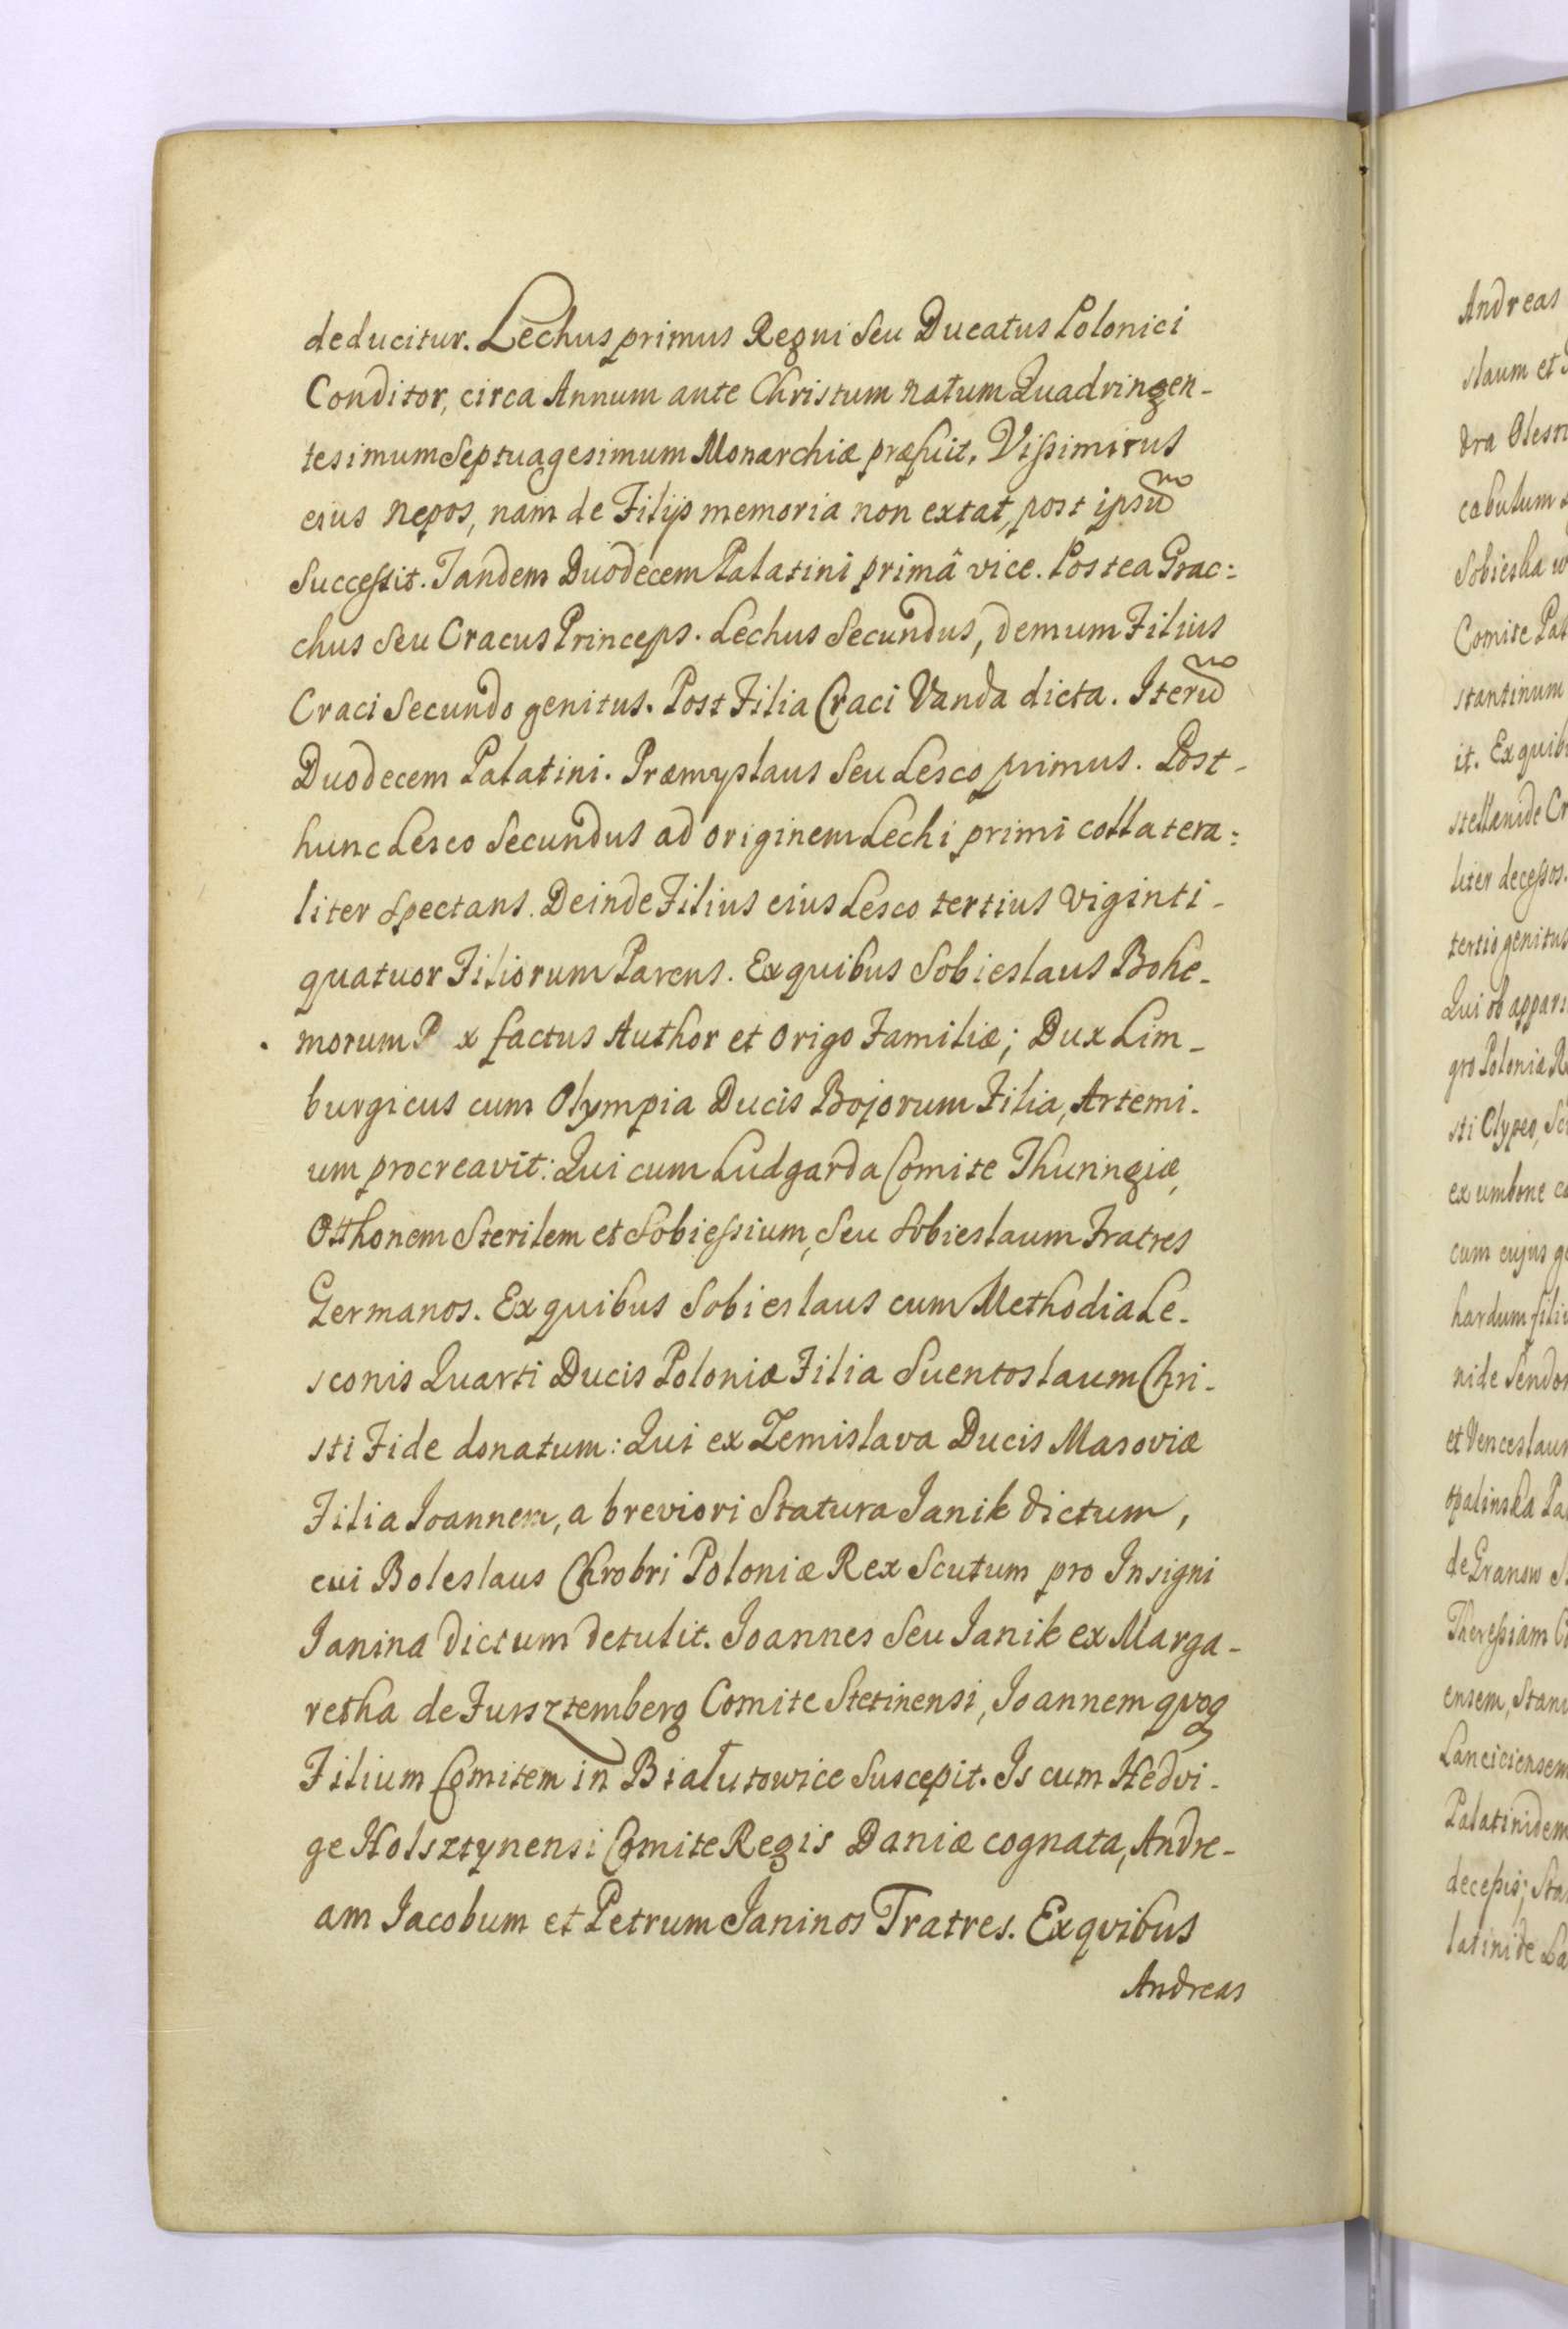 deducitur. Lechus primus Regni Seu Ducatus Polonici
Conditor, circa Annum ante Christum natum Quadringen-
tesimum Septuagesimum Monarchiæ præfuit. Vissimirus
eius nepos, nam de Filijs memoria non extat, post ipsũ
Successit. Tandem Duodecem Palatini primâ vice. Postea Grac:
chus Seu Cracus Princeps. Lechus Secundus, demum Filius
Craci Secundo genitus. Post Filia Craci Vanda dicta. Iterũ
Duodecem Palatini. Præmyslaus Seu Lesco primus. Post-
hunc Lesco Secundus ad originem Lechi primi collatera:
liter Spectans. Deinde Filius eius Lesco tertius viginti-
quatuor Filiorum Parens. Ex quibus Sobieslaus Bohe-
morum factus Author et Origo Familiæ; Dux Lim-
burgicus cum Olympia Ducis Bojorum Filia, Artemi-
um procreavit: Qui cum Ludgarda Comite Thuringiæ,
Otthonem Sterilem et Sobiessium, Seu Sobieslaum Fratres
Germanos. Ex quibus Sobieslaus cum Methodia Le-
sconis Quarti Ducis Poloniæ Filia Suentoslaum Chri-
sti Fide donatum: Qui ex Zemislava Ducis Masoviæ
Filia Ioannem, a breviori Statura Janik dictum,
cui Boleslaus Chrobri Poloniæ Rex Scutum pro Insigni
Janina dictum detulit. Joannes Seu Janik ex Marga-
retha de Fursztemberg Comite Stetinensi, Joannem qvoq
Filium Comitem in Białutowice Suscepit. Is cum Hedvi-
ge Holsztynensi Comite Regis Daniæ cognata, Andre-
am Jacobum et Petrum Janinos Fratres. Ex qvibus
Andreas
Andreas
slaum et
dra Olesn
cabulum
Sobieska
Comite Pal
stantinum
it. Ex quib
liter decessos.
tertio genitus
Qui ob appar
gro Poloniæ R
sti Clypeo,
ex umbone
cum cujus
hardum fili
nide Sendo
et Venceslaum
Opalinska Pa
de Granow
Theressiam
ensem, Stan
Lanciciensem
Palatinidem
decessis; Sta
latinide La